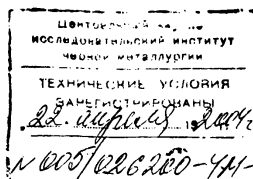 Центральный
исследовательский институт
черной металлургии
ТЕХНИЧЕСКИЕ УСЛОВИЯ
ЗАРЕГИСТРИРОВАНЫ
22. апреля 2004г
N 005/026200-